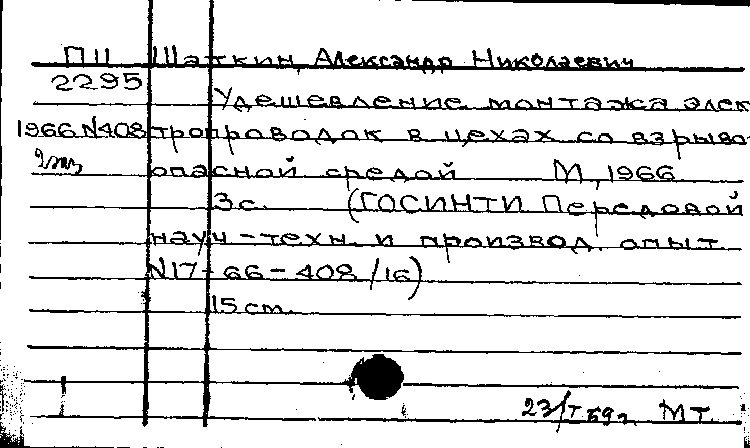 ПII Шаткин, Александр Николаевич
2295
Удешевление монтажа элек
1966 N408 тропроводок в цехах со взрыво
2 экз опасной средой М, 1966
3 с. (ГОСИНТИ Передовой
науч-техн. и производ. опыт
N17-66-408/16)
15 см.
МТ.